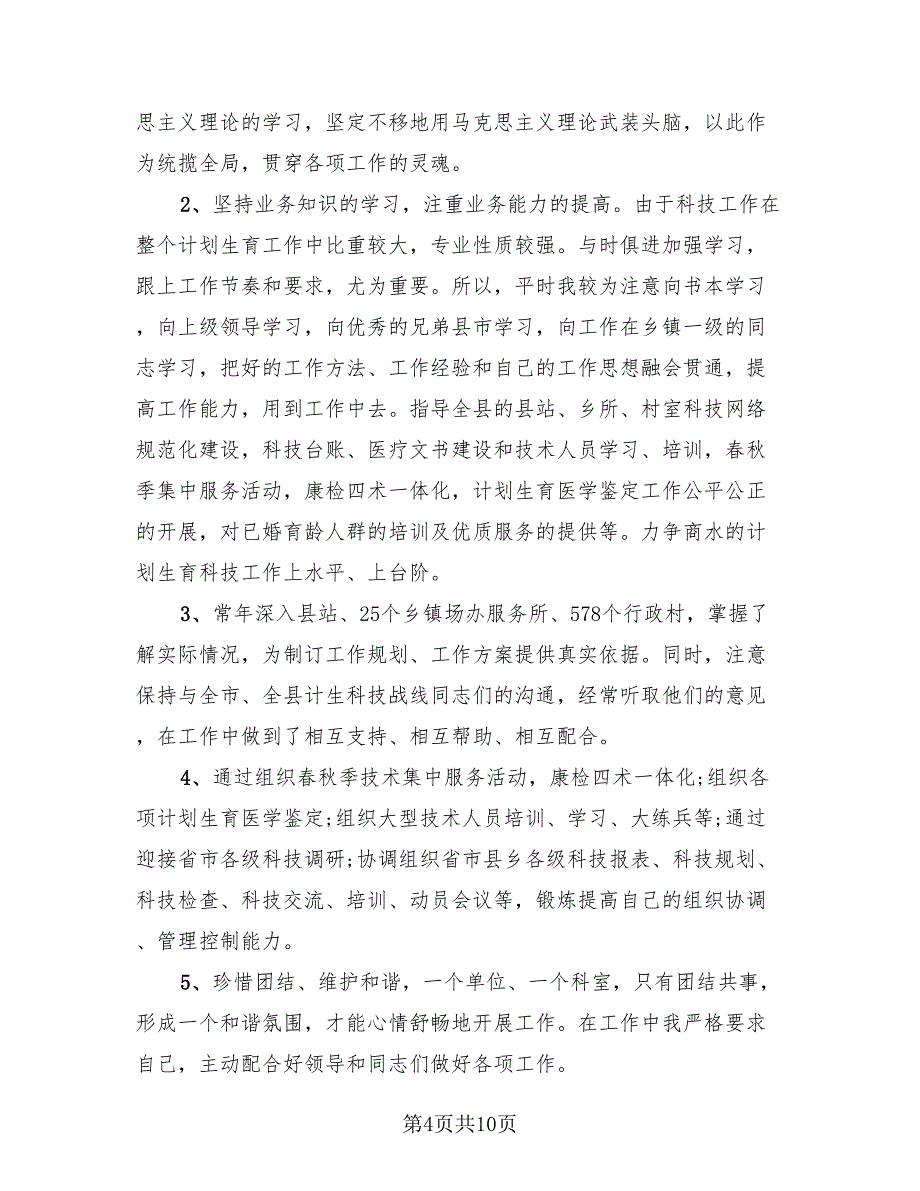 思主义理论的学习，坚定不移地用马克思主义理论武装头脑，以此作
为统揽全局，贯穿各项工作的灵魂。
2、坚持业务知识的学习，注重业务能力的提高。由于科技工作在
整个计划生育工作中比重较大，专业性质较强。与时俱进加强学习，
跟上工作节奏和要求，尤为重要。所以，平时我较为注意向书本学习
，向上级领导学习，向优秀的兄弟县市学习，向工作在乡镇一级的同
志学习，把好的工作方法、工作经验和自己的工作思想融会贯通，提
高工作能力，用到工作中去。指导全县的县站、乡所、村室科技网络
规范化建设，科技台账、医疗文书建设和技术人员学习、培训，春秋
季集中服务活动，康检四术一体化，计划生育医学鉴定工作公平公正
的开展，对已婚育龄人群的培训及优质服务的提供等。力争商水的计
划生育科技工作上水平、上台阶。
3、常年深入县站、25个乡镇场办服务所、578个行政村，掌握了
解实际情况，为制订工作规划、工作方案提供真实依据。同时，注意
保持与全市、全县计生科技战线同志们的沟通，经常听取他们的意见
，在工作中做到了相互支持、相互帮助、相互配合。
4、通过组织春秋季技术集中服务活动，康检四术一体化;组织各
项计划生育医学鉴定;组织大型技术人员培训、学习、大练兵等;通过
迎接省市各级科技调研;协调组织省市县乡各级科技报表、科技规划、
科技检查、科技交流、培训、动员会议等，锻炼提高自己的组织协调
、管理控制能力。
5、珍惜团结、维护和谐，一个单位、一个科室，只有团结共事，
形成一个和谐氛围，才能心情舒畅地开展工作。在工作中我严格要求
自己，主动配合好领导和同志们做好各项工作。
第4页共10页